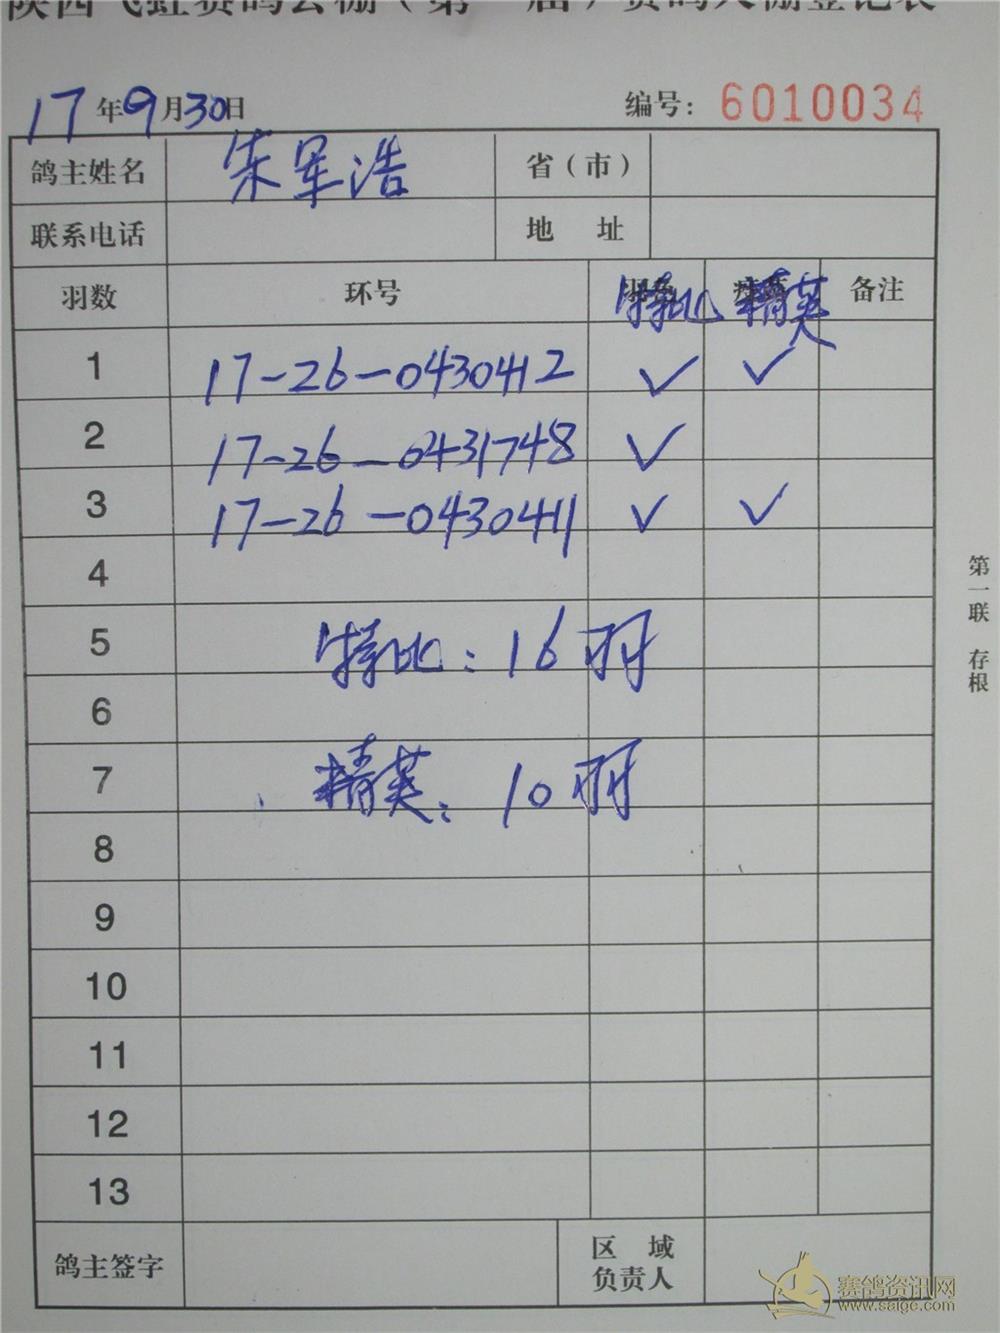 陕西飞虹赛鸽公棚（第 届）赛鸽入棚登记表
17年9月30日 编号：6010034
鸽主姓名 朱军浩 省（市）
联系电话 地 址
羽数 环号 特比 精英 备注
1 17-26-0430412 ✓ ✓
2 17-26-0431748 ✓
3 17-26-0430411 ✓ ✓
4
5 特比：16羽
6
7 精英：10羽
8
9
10
11
12
13
鸽主签字 区 域
负责人
第一联 存根
赛鸽资讯网
www.saige.com